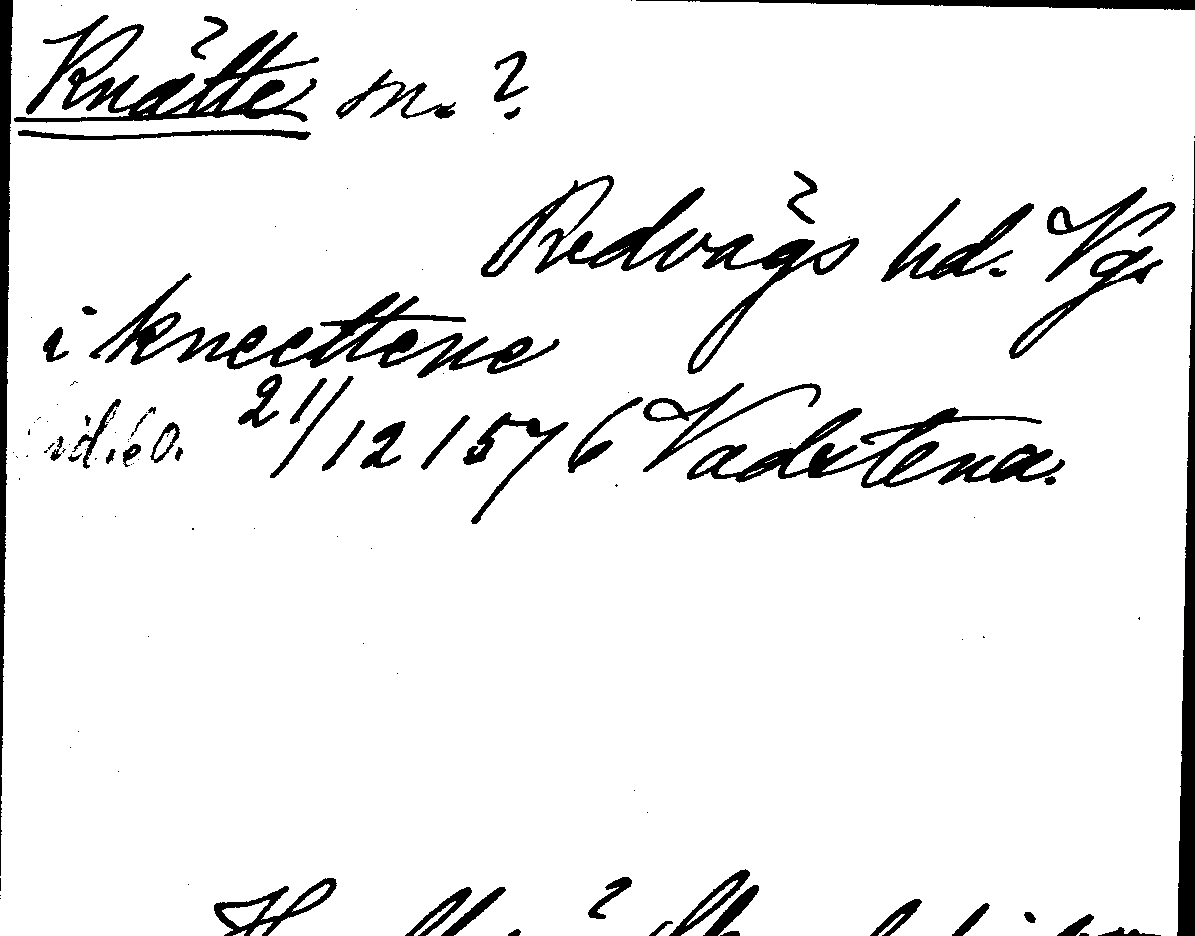 Knätte m. ?
Redvägs hd. Vgs
i kneettene
sid. 60. 21/12 1576 Vadstena.